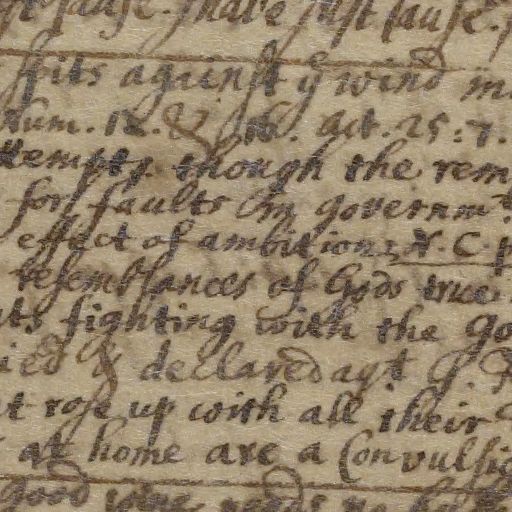 cause. I have Just cause.
spits against yͤ wind
Num. 12. & 16. act. 25: 7.
attempts. though the rem
for faults in governmͭ
effect of ambition; N. C. p
resemblances of Gods true
fighting with the Go
& declared agᵗ
rose up with all their
at home are a Convulsi
good